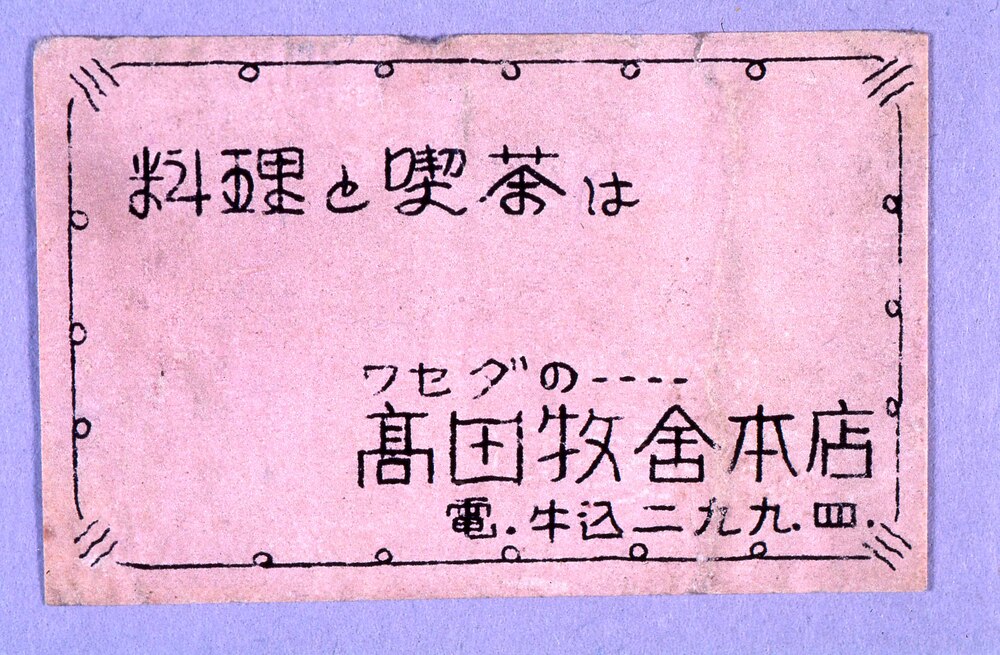 料理と喫茶は
ワセダの----
髙田牧舎本店
電.牛込二九九.四.